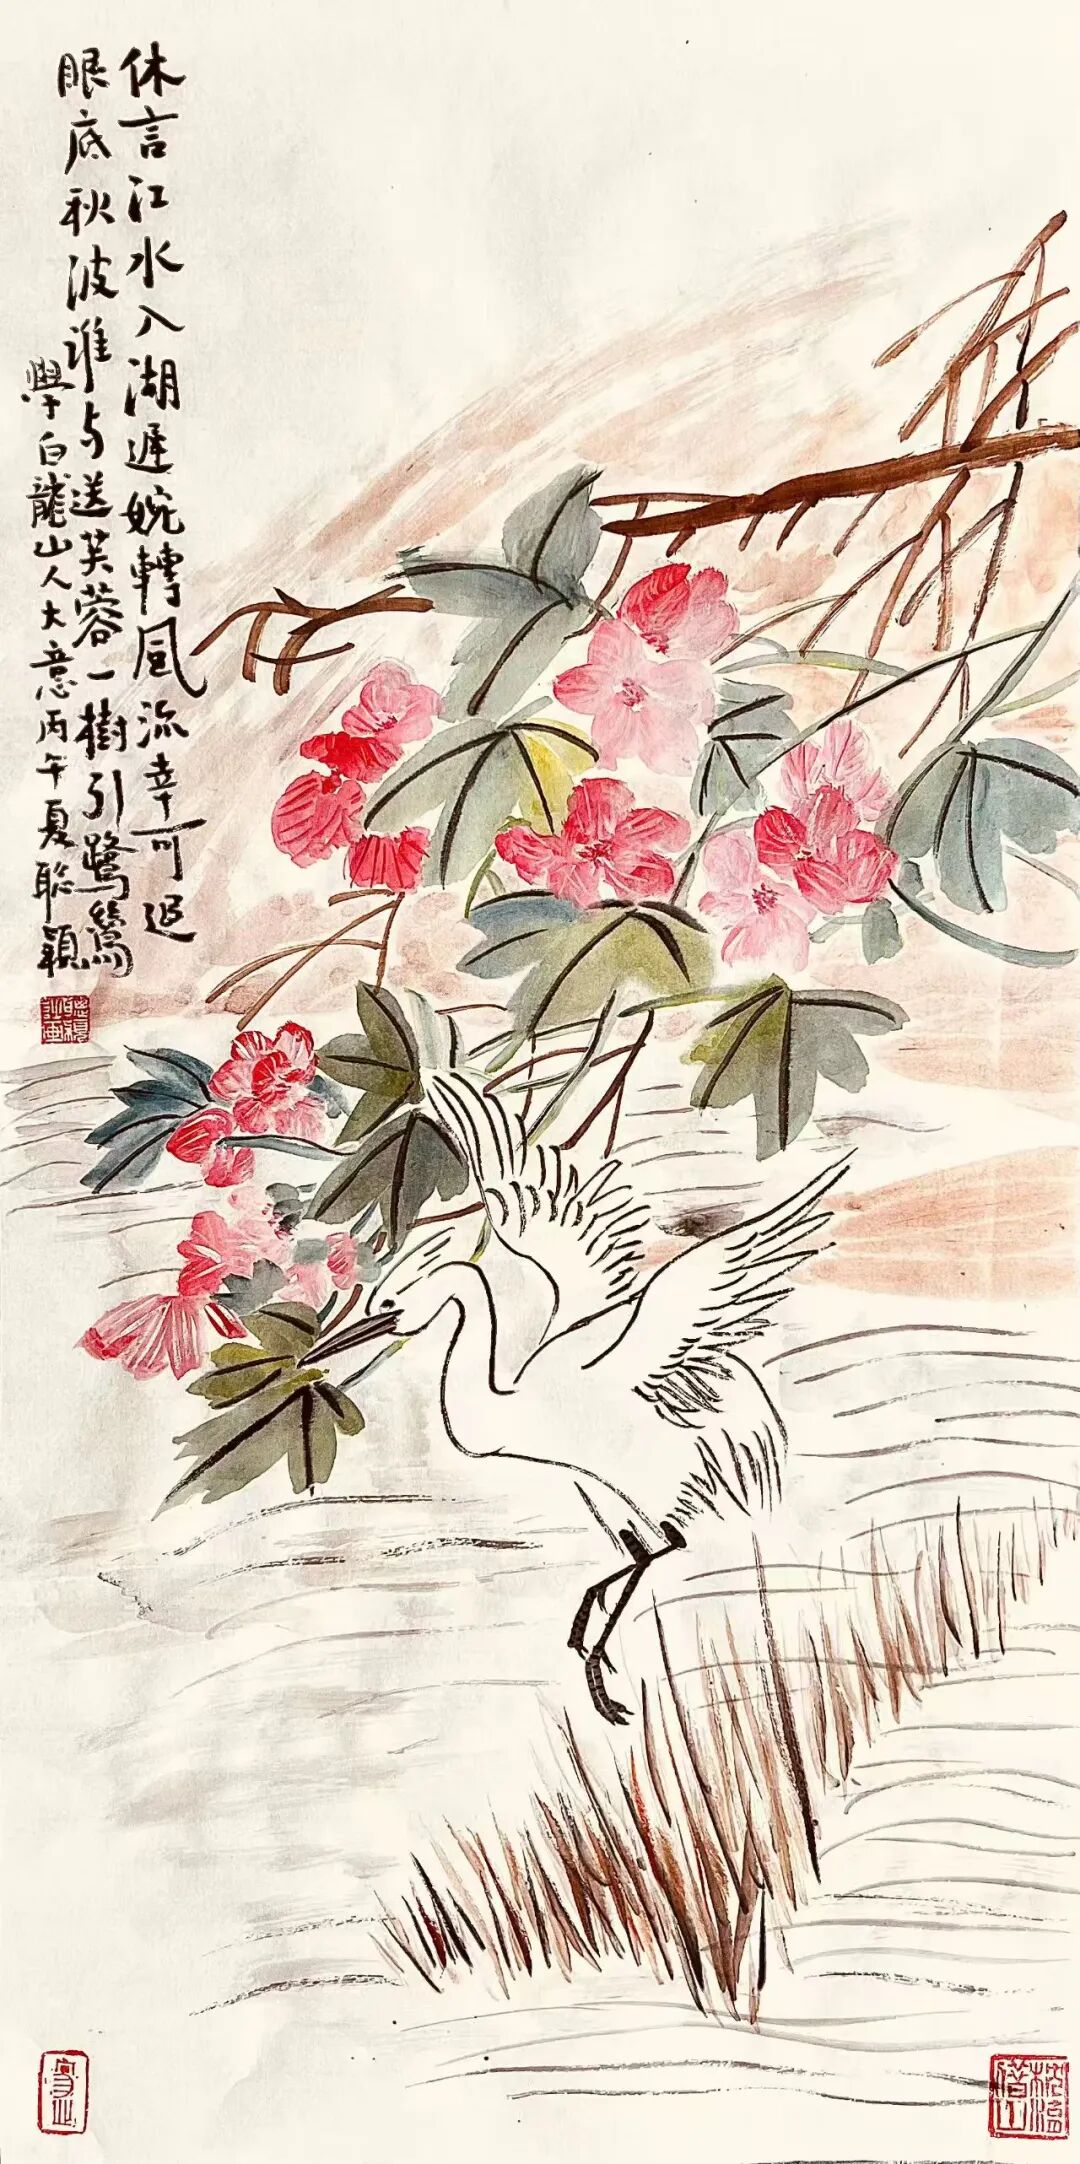 休言江水入湖遲婉轉風流幸可追
眼底秋波誰与送芙蓉一樹引鷺鷥
學白龍山人大意丙午夏聪穎